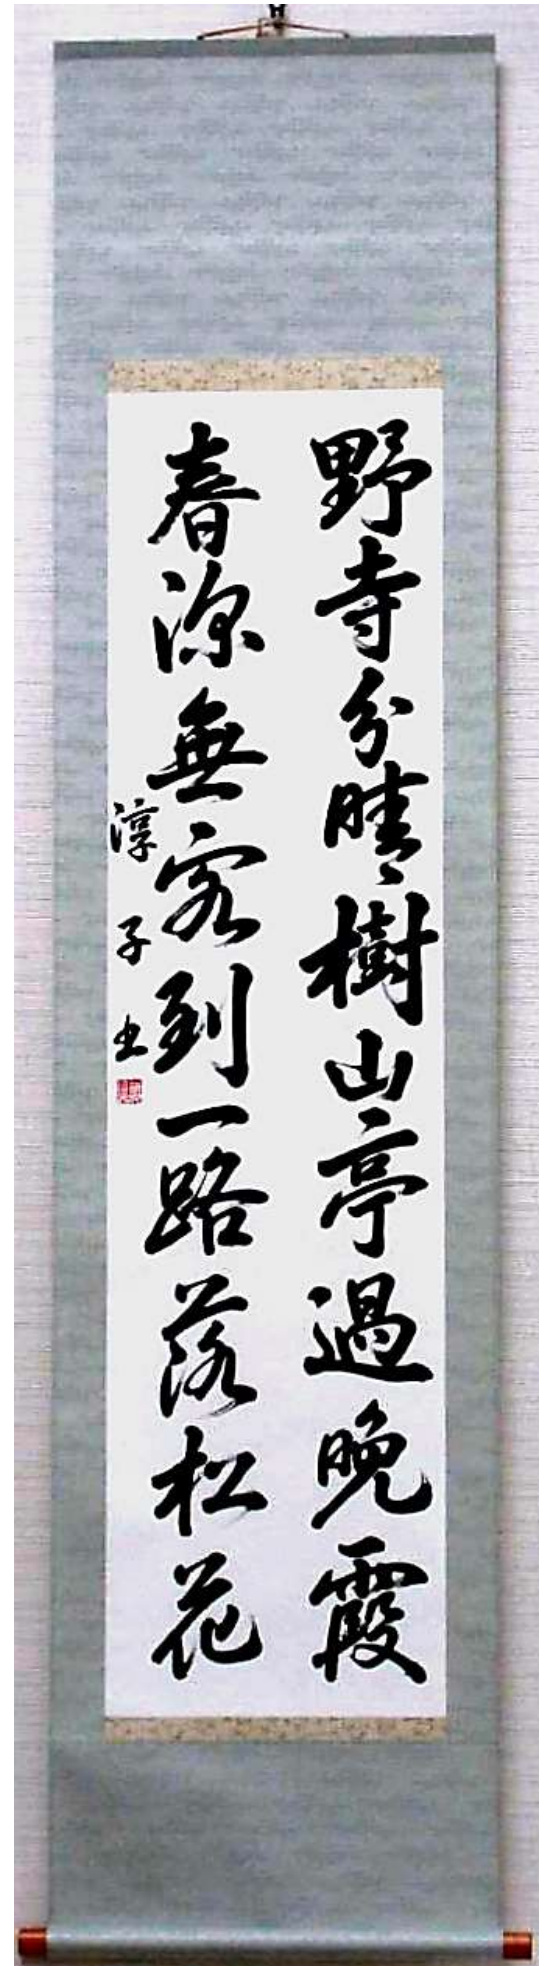 野寺分晴樹山亭過晩霞
春深無客到一路落松花
淳子書